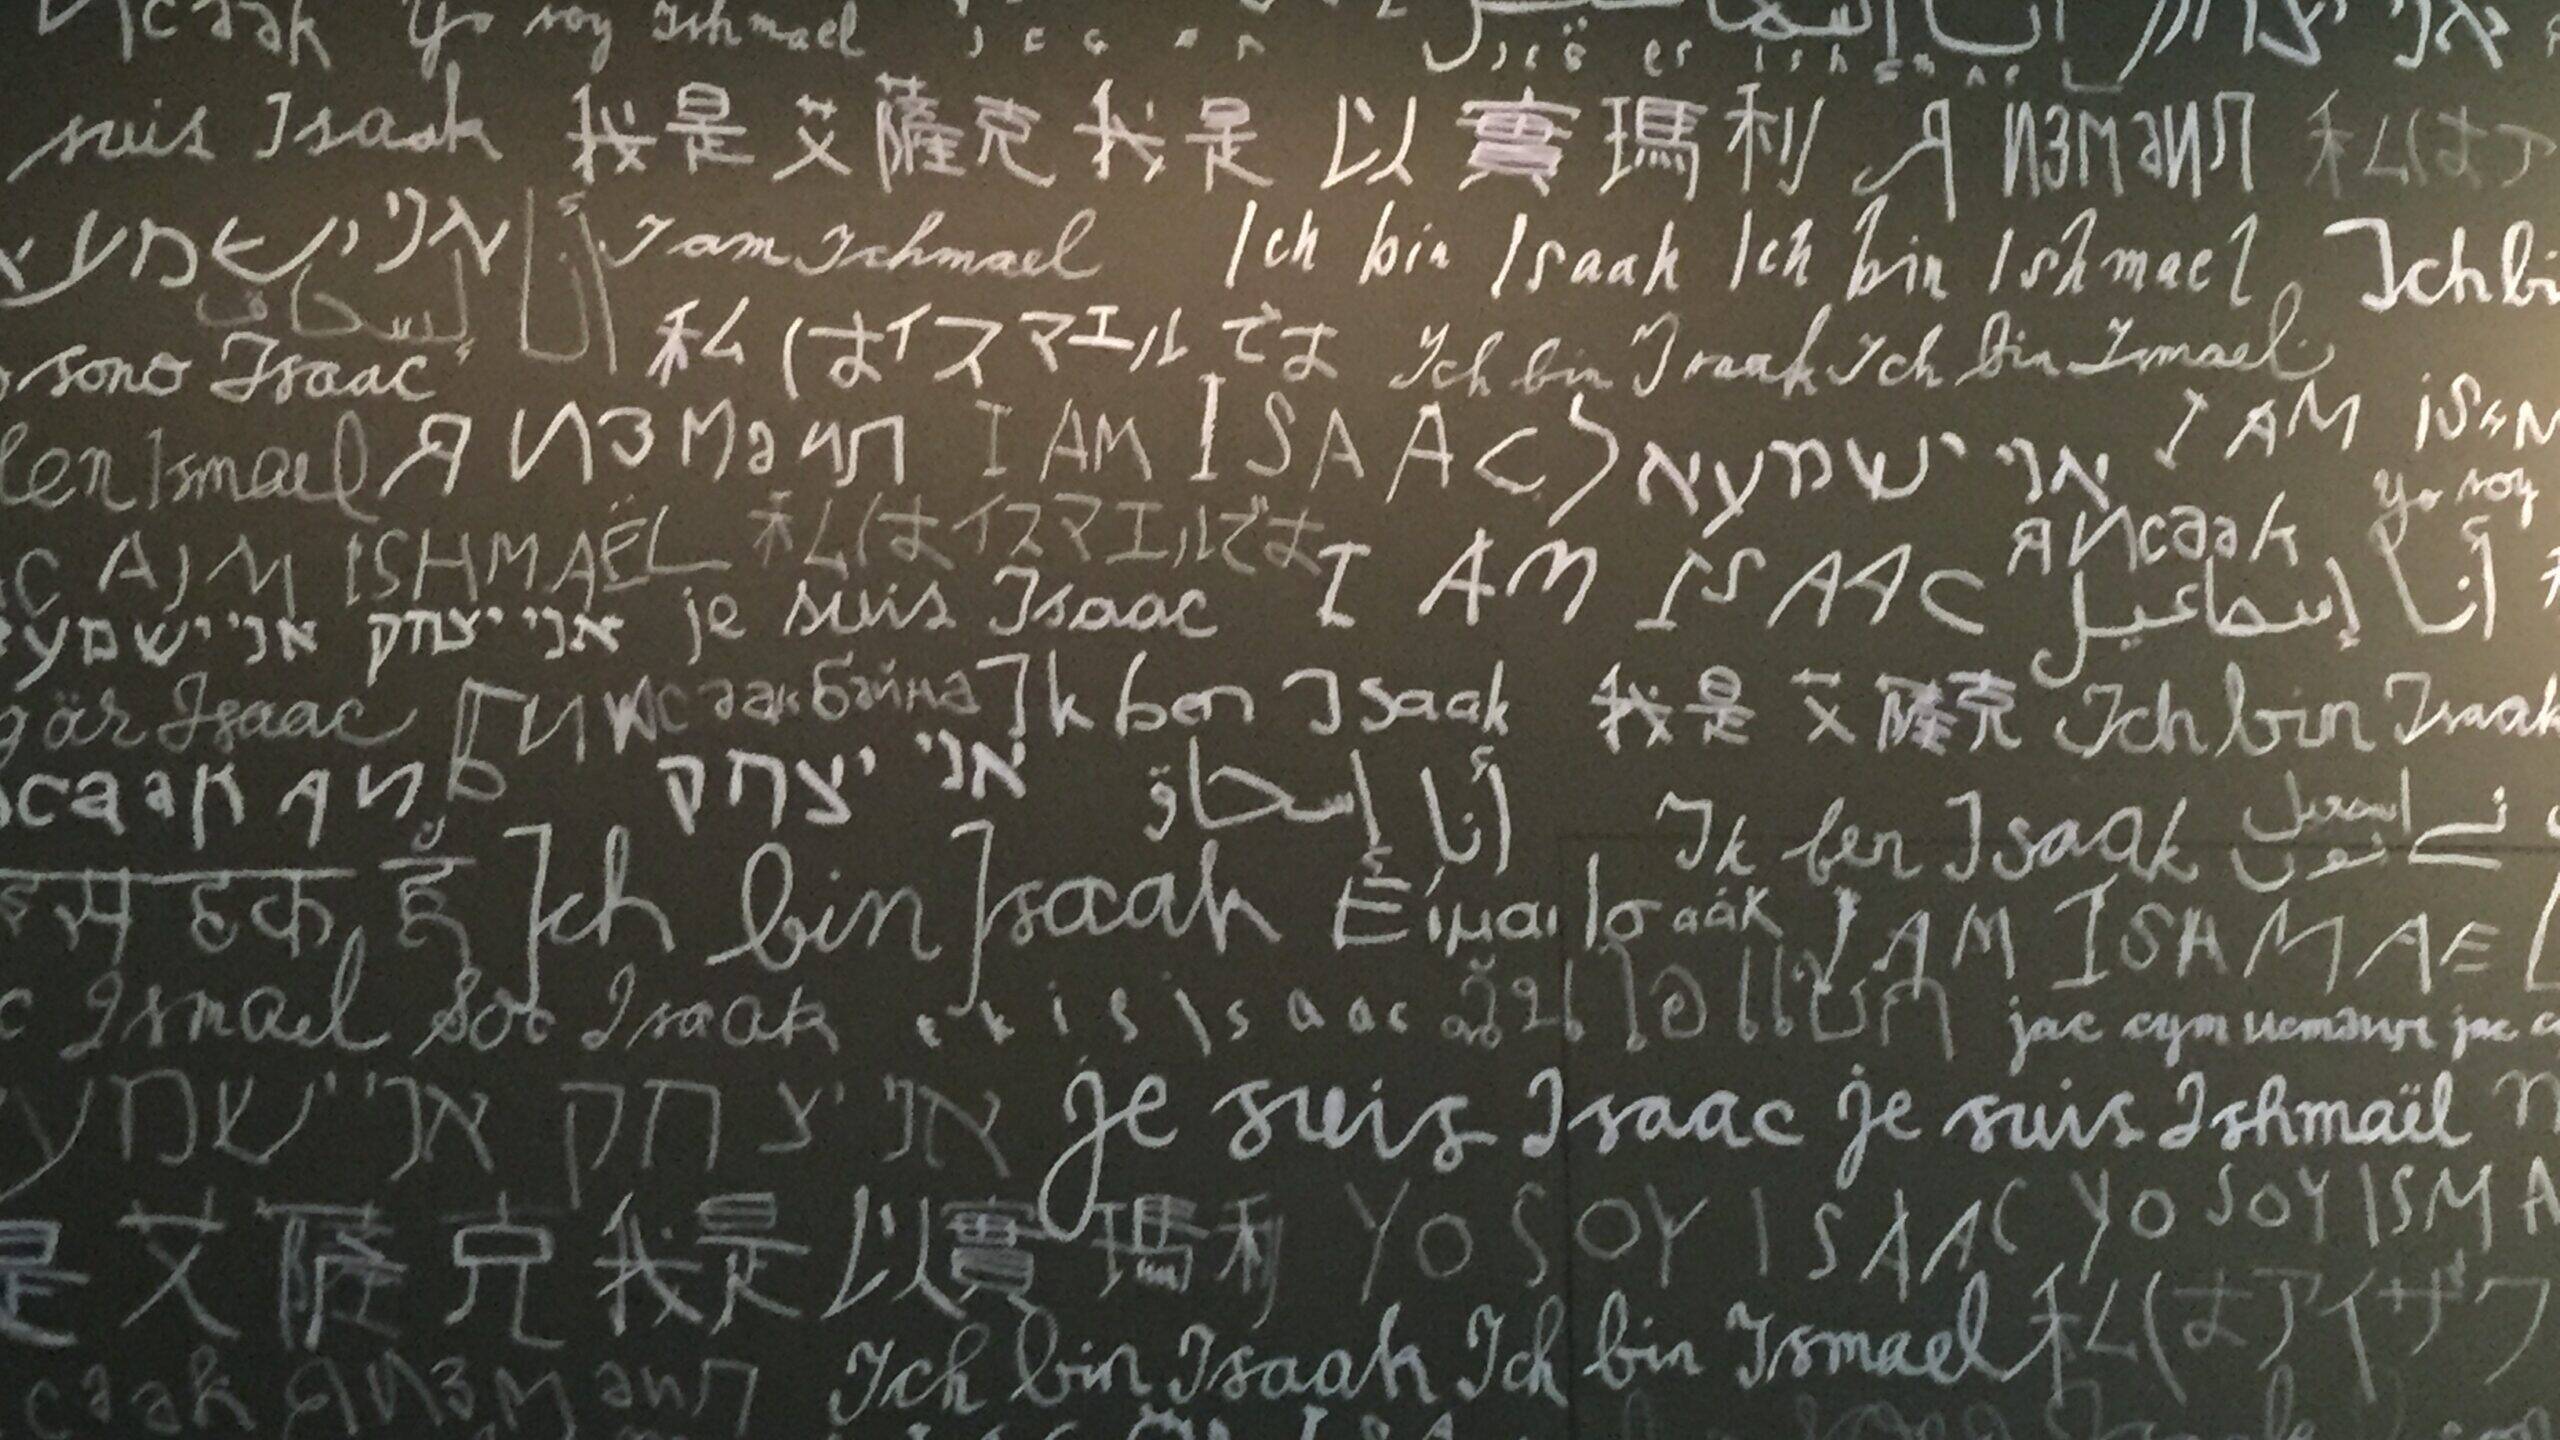 Yo soy Ishmael
suis Isaak 我是艾薩克 我是以實瑪利 Я Измаил 私はア
אני ישמעא أنا إسحاق I am Ishmael Ich bin Isaak Ich bin Ishmael Ich bi
sono Isaac 私はイスマエルです Ich bin Isaak Ich bin Ismael
Ismael Я Измаил I AM ISAAC אני ישמעא I AM
C AM ISHMAËL 私はイスマエルです Я Исаак Yo soy
אני יצחק אני ישמע je suis Isaac I AM ISAAC أنا إسماعيل
är Isaac Би Исаак байна Ik ben Isaak 我是艾薩克 Ich bin Isaak
саак אני יצחק أنا إسحاق Ik ben Isaak
इसहक हूँ Ich bin Isaak Είμαι Ισαάκ I AM ISHMAEL
c Ismael Isaak ek is isaac ฉันไอแซก јас сум јас
אני יצחק אני ישמע je suis Isaac je suis Ishmaël
是艾薩克 我是以實瑪利 YO SOY ISAAC YO SOY ISMA
саак Я Измаил Ich bin Isaak Ich bin Ismael 私はアイザク